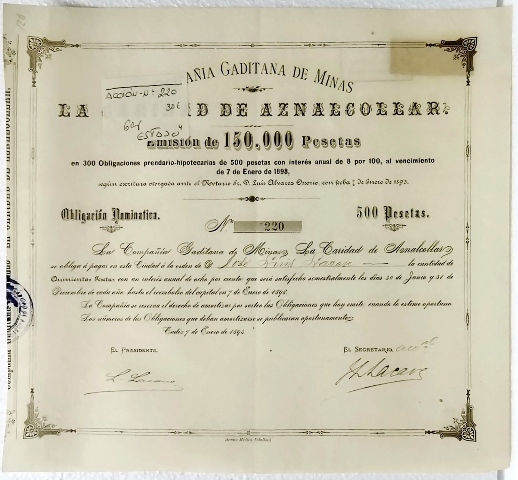 AÑIA GADITANA DE MINAS
ACCIÓN-Nº 220
30€
ESTADO
LA DAD DE AZNALCOLLAR
Emisión de 150,000 Pesetas
en 300 Obligaciones prendario-hipotecarias de 500 pesetas con interés anual de 8 por 100, al vencimiento
de 7 de Enero de 1898,
según escritura otorgada ante el Notario Sr. D. Luis Alvarez Osorio, con fecha 7 de Enero de 1893.
Obligación Nominativa.
Nº 220
500 Pesetas.
La Compañía Gaditana de Minas La Caridad de Aznalcollar
se obliga á pagar en esta Ciudad á la orden de D. José Lacave la cantidad de
Quinientas Pesetas con un interés anual de ocho por ciento que será satisfecho semestralmente los días 30 de Junio y 31 de
Diciembre de cada año hasta el reembolso del capital en 7 de Enero de 1898.
La Compañía se reserva el derecho de amortizar por sorteo las Obligaciones que hoy emite cuando lo estime oportuno.
Los números de las Obligaciones que deban amortizarse se publicarán oportunamente.
Cadiz 7 de Enero de 1894.
EL PRESIDENTE,
EL SECRETARIO,
L. Lacave
JLLacave